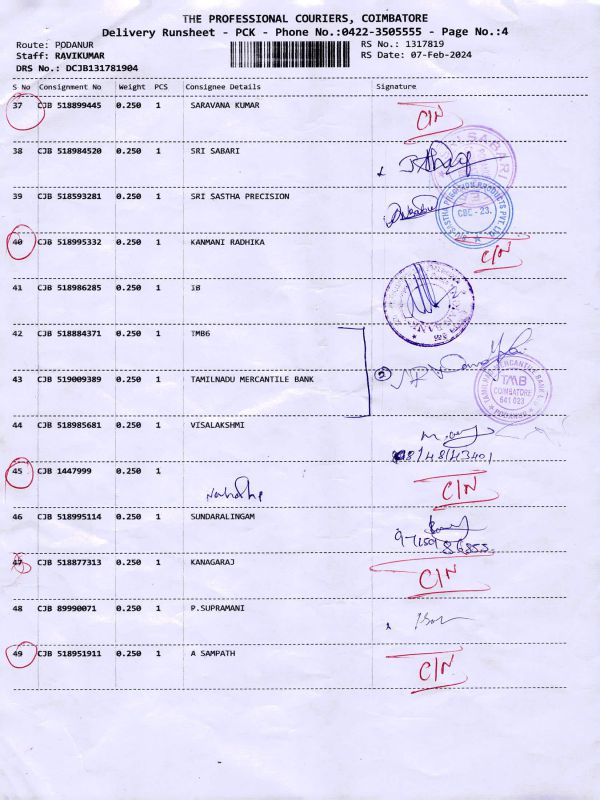 THE PROFESSIONAL COURIERS, COIMBATORE
Delivery Runsheet - PCK - Phone No.:0422-3505555 - Page No.:4
Route: PODANUR RS No.: 1317819
Staff: RAVIKUMAR RS Date: 07-Feb-2024
DRS No.: DCJB131781904
S No Consignment No Weight PCS Consignee Details Signature
37 CJB 518899445 0.250 1 SARAVANA KUMAR C/N
38 CJB 518984520 0.250 1 SRI SABARI
39 CJB 518593281 0.250 1 SRI SASTHA PRECISION
CBE - 23.
40 CJB 518995332 0.250 1 KANMANI RADHIKA C/N
41 CJB 518986285 0.250 1 IB
42 CJB 518884371 0.250 1 TMB6
43 CJB 519009389 0.250 1 TAMILNADU MERCANTILE BANK 2
TAMILNAD MERCANTILE BANK
TMB
COIMBATORE
641 023
44 CJB 518985681 0.250 1 VISALAKSHMI
45 CJB 1447999 0.250 1 C/N
46 CJB 518995114 0.250 1 SUNDARALINGAM
47 CJB 518877313 0.250 1 KANAGARAJ C/N
48 CJB 89990071 0.250 1 P.SUPRAMANI
49 CJB 518951911 0.250 1 A SAMPATH C/N